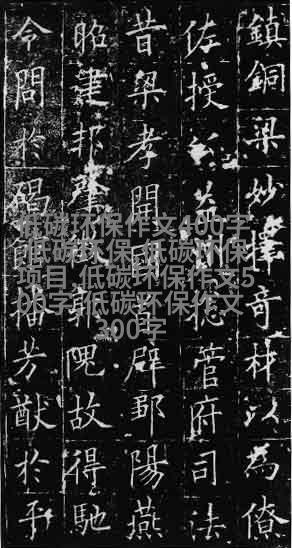 鎮銅梁妙擇奇材以為僚
佐授公益州總管府司法
昔梁孝開國首辟鄒陽燕
昭建邦肇徵郭隗故得馳
令問於碣館播芳猷於平
低碳环保作文400字
,低碳环保,低碳环保
项目,低碳环保作文5
00字,低碳环保作文
300字